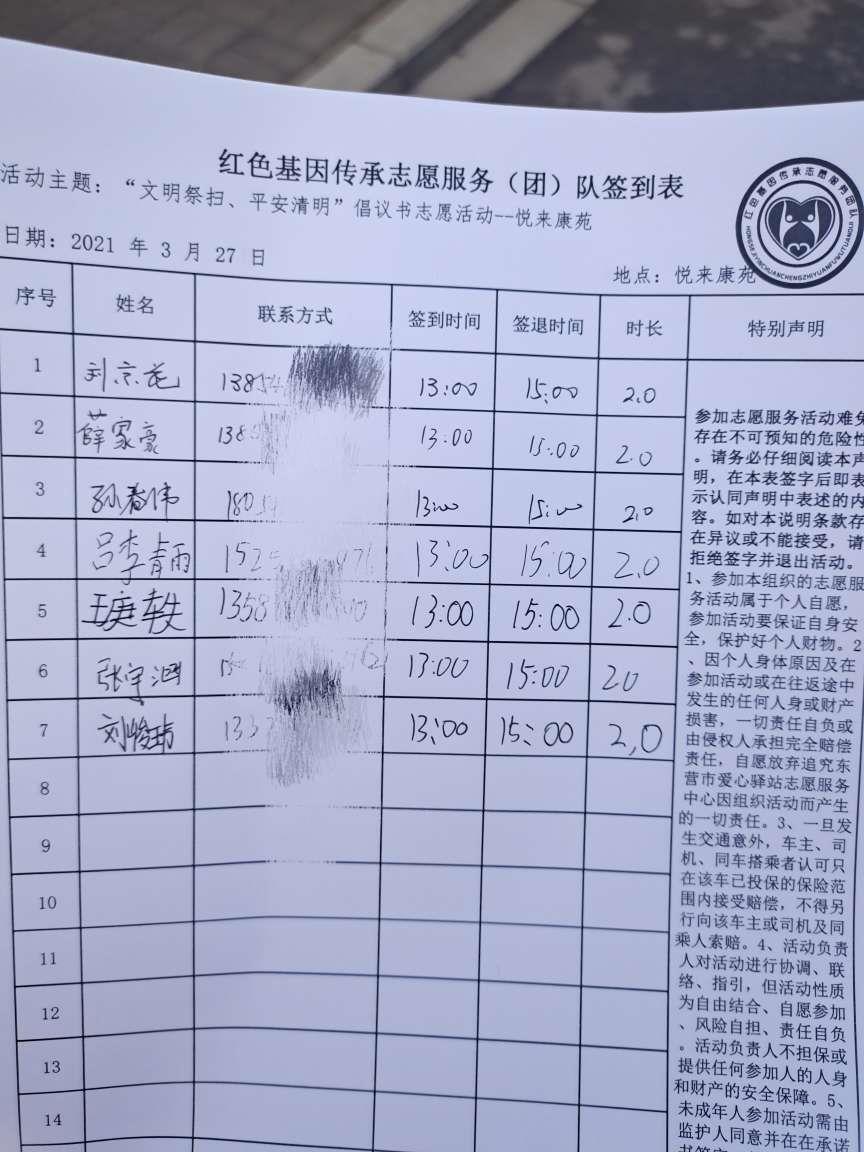 红色基因传承志愿服务（团）队签到表
活动主题：“文明祭扫、平安清明”倡议书志愿活动--悦来康苑
日期：2021 年 3 月 27 日
地点：悦来康苑
红色基因传承志愿服务团队
HONGSEJIYINCHUANCHENGZHIYUANFUWUTUANDUI
序号 姓名 联系方式 签到时间 签退时间 时长 特别声明
1 刘京花 13854 13:00 15:00 2.0
2 薛家豪 138 13:00 15:00 2.0
3 孙春伟 18054 13:00 15:00 2.0
4 吕李婧雨 152 13:00 15:00 2.0
5 1358 13:00 15:00 2.0
6 张宇涵 13:00 15:00 20
7 刘峻玮 133 13:00 15:00 2,0
8
9
10
11
12
13
14
参加志愿服务活动难免
存在不可预知的危险性
。请务必仔细阅读本声
明，在本表签字后即表
示认同声明中表述的内
容。如对本说明条款存
在异议或不能接受，请
拒绝签字并退出活动。
1、参加本组织的志愿服
务活动属于个人自愿，
参加活动要保证自身安
全，保护好个人财物。2
、因个人身体原因及在
参加活动或在往返途中
发生的任何人身或财产
损害，一切责任自负或
由侵权人承担完全赔偿
责任，自愿放弃追究东
营市爱心驿站志愿服务
中心因组织活动而产生
的一切责任。3、一旦发
生交通意外，车主、司
机、同车搭乘者认可只
在该车已投保的保险范
围内接受赔偿，不得另
行向该车主或司机及同
乘人索赔。4、活动负责
人对活动进行协调、联
络、指引，但活动性质
为自由结合、自愿参加
、风险自担、责任自负
。活动负责人不担保或
提供任何参加人的人身
和财产的安全保障。5、
未成年人参加活动需由
监护人同意并在在承诺